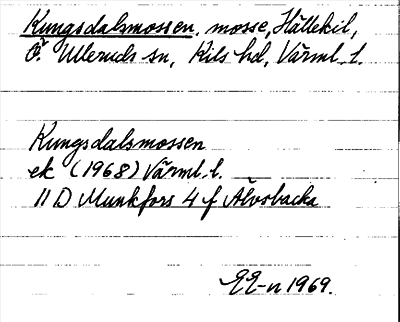 Kungsdalsmossen, mosse, Hällekil,
Ö. Ulleruds sn, Kils hd, Värml. l.
Kungsdalsmossen
ek (1968) Värml. l.
11 D Munkfors 4 f Älvsbacka
EE-n 1969.